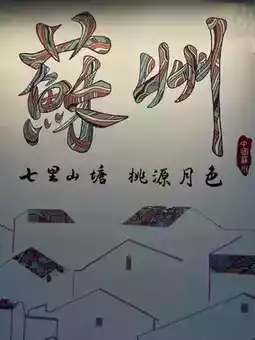 蘇州
七里山塘 桃源月色
中國蘇州